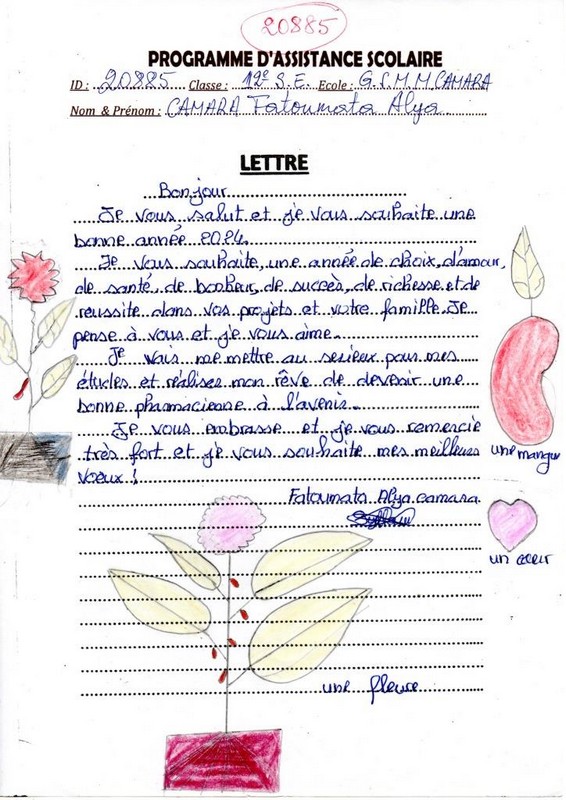 20885
PROGRAMME D'ASSISTANCE SCOLAIRE
ID : 20885 Classe : 12e S.E. Ecole : G.S.M.M.CAMARA
Nom & Prénom : CAMARA Fatoumata Alya
LETTRE
Bonjour
Je vous salut et je vous souhaite une
bonne année 2024.
Je vous souhaite, une année de choix, d'amour,
de santé, de bonheur, de succès, de richesse et de
reussite dans vos projets et votre famille. Je
pense à vous et je vous aime.
Je vais me mettre au serieux pour mes
études et réaliser mon rêve de devenir une
bonne pharmacienne à l'avenir.
Je vous embrasse et je vous remercie
très fort et je vous souhaite mes meilleurs
voeux !
Fatoumata Alya camara
une mangue
un coeur
une fleure